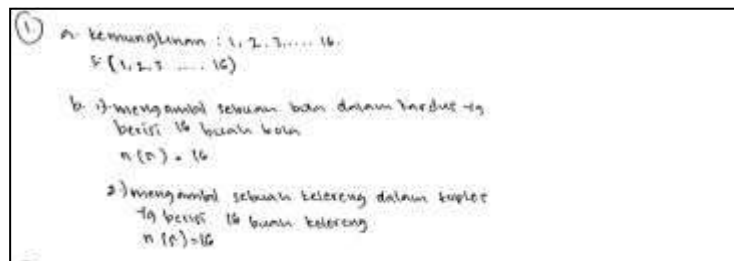 1. a. kemungkinan : 1, 2, 3, .... 16.
S {1, 2, 3 .... 16)
b. 1) mengambil sebuah bola dalam kardus yg
berisi 16 buah bola
n (s) = 16
2.) mengambil sebuah kelereng dalam toples
yg berisi 16 buah kelereng
n (s) = 16